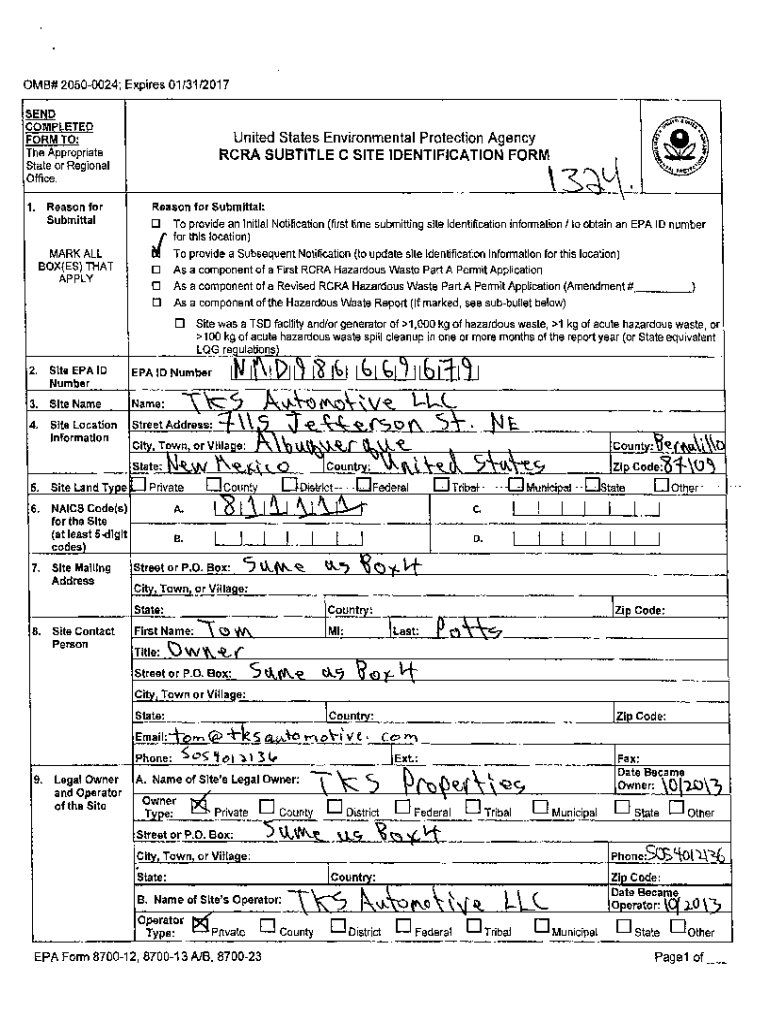 OMB# 2050-0024; Expires 01/31/2017
SEND
COMPLETED
FORM TO:
The Appropriate
State or Regional
Office.
United States Environmental Protection Agency
RCRA SUBTITLE C SITE IDENTIFICATION FORM
1324.
1. Reason for
Submittal
MARK ALL
BOX(ES) THAT
APPLY
Reason for Submittal:
☐ To provide an Initial Notification (first time submitting site identification information / to obtain an EPA ID number
for this location)
☑ To provide a Subsequent Notification (to update site identification information for this location)
☐ As a component of a First RCRA Hazardous Waste Part A Permit Application
☐ As a component of a Revised RCRA Hazardous Waste Part A Permit Application (Amendment #________)
☐ As a component of the Hazardous Waste Report (If marked, see sub-bullet below)
☐ Site was a TSD facility and/or generator of >1,000 kg of hazardous waste, >1 kg of acute hazardous waste, or
>100 kg of acute hazardous waste spill cleanup in one or more months of the report year (or State equivalent
LQG regulations)
2. Site EPA ID
Number
EPA ID Number NMD986669679
3. Site Name Name: TKS Automotive LLC
4. Site Location
Information
Street Address: 7115 Jefferson St. NE
City, Town, or Village: Albuquerque County: Bernalillo
State: New Mexico Country: United States Zip Code: 87109
5. Site Land Type ☐ Private ☐ County ☐ District ☐ Federal ☐ Tribal ☐ Municipal ☐ State ☐ Other
6. NAICS Code(s)
for the Site
(at least 5-digit
codes)
A. 811111 C.
B. D.
7. Site Mailing
Address
Street or P.O. Box: Same as Box 4
City, Town, or Village:
State: Country: Zip Code:
8. Site Contact
Person
First Name: Tom MI: Last: Potts
Title: Owner
Street or P.O. Box: Same as Box 4
City, Town or Village:
State: Country: Zip Code:
Email: tom@tksautomotive.com
Phone: 5054012136 Ext.: Fax:
9. Legal Owner
and Operator
of the Site
A. Name of Site's Legal Owner: TKS Properties Date Became
Owner: 10/2013
Owner
Type: ☒ Private ☐ County ☐ District ☐ Federal ☐ Tribal ☐ Municipal ☐ State ☐ Other
Street or P.O. Box: Same as Box 4
City, Town, or Village: Phone: 5054012136
State: Country: Zip Code:
B. Name of Site's Operator: TKS Automotive LLC Date Became
Operator: 10/2013
Operator
Type: ☒ Private ☐ County ☐ District ☐ Federal ☐ Tribal ☐ Municipal ☐ State ☐ Other
EPA Form 8700-12, 8700-13 A/B, 8700-23 Page1 of ___